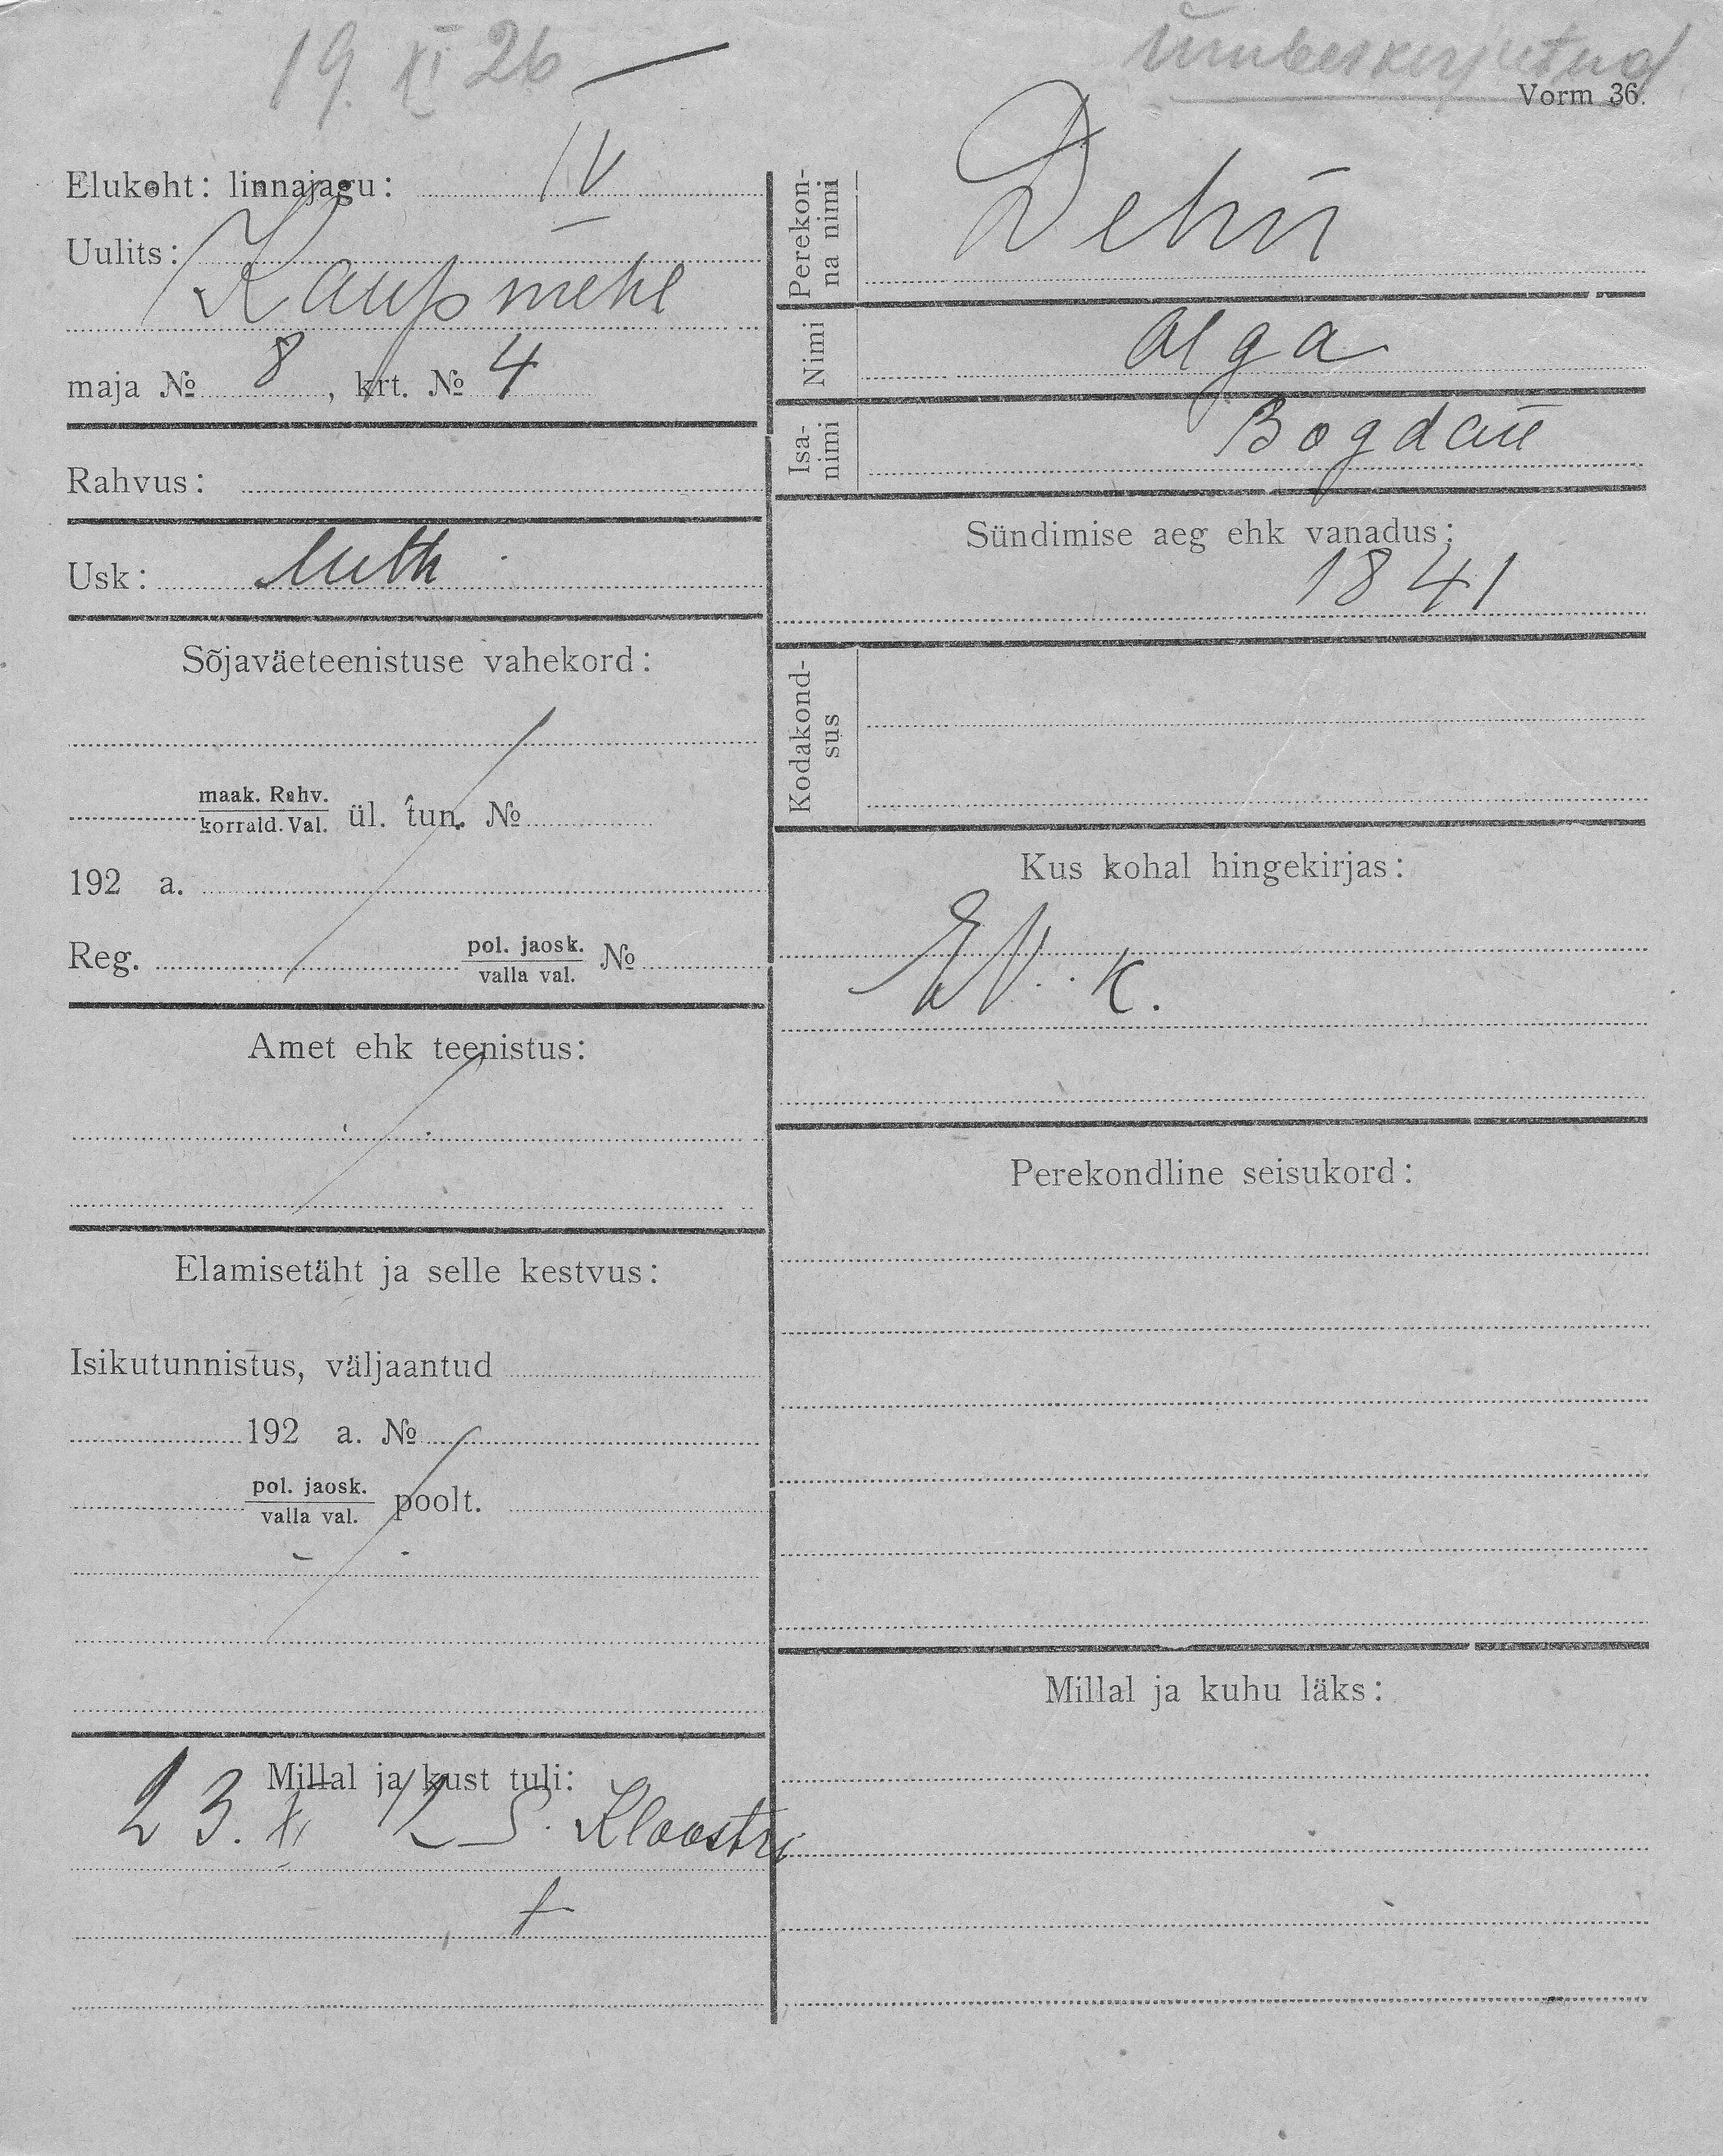 19. XI 26 —
ümberkirjutud
Vorm 36.
Elukoht: linnajagu: IV
Uulits:
Kaupmehe
maja № 8, krt. № 4
Rahvus:
Usk: luth
Sõjaväeteenistuse vahekord:
maak. Rahv.
korrald. Val. ül. tun. №
192 a.
Reg. pol. jaosk.
valla val. №
Amet ehk teenistus:
Elamisetäht ja selle kestvus:
Isikutunnistus, väljaantud
192 a. №
pol. jaosk.
valla val. poolt.
Millal ja kust tuli:
23. XI 25. Kloostri
Perekon-
na nimi
Dehn
Nimi
Olga
Isa-
nimi
Bogdan
Sündimise aeg ehk vanadus:
1841
Kodakond-
sus
Kus kohal hingekirjas:
Perekondline seisukord:
Millal ja kuhu läks: